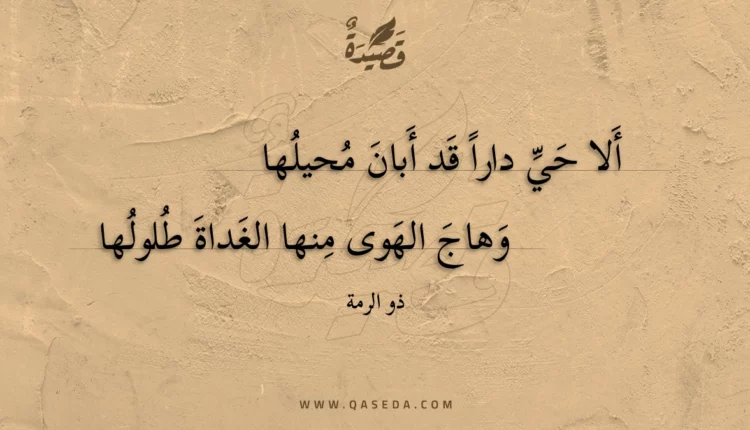 قَصِيدَةٌ
أَلا حَيِّ داراً قَد أَبانَ مُحيلُها
وَهاجَ الهَوى مِنها الغَداةَ طُلولُها
ذو الرمة
WWW.QASEDA.COM